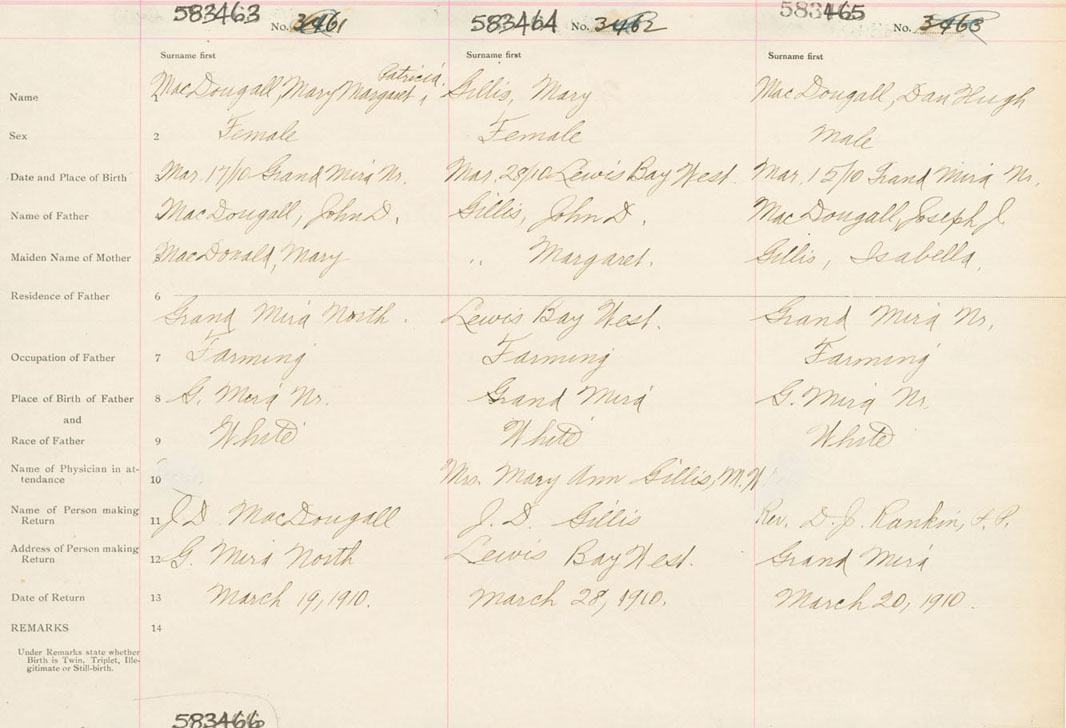 583463 No. 3461 583464 No. 3462 583465 No. 3463
Surname first Surname first Surname first
Patricia
Name 1 MacDougall, Mary Margaret, Gillis, Mary MacDougall, Dan Hugh
Sex 2 Female Female Male
Date and Place of Birth Mar. 17/10 Grand Mira Nr. Mar. 28/10 Lewis Bay West. Mar. 15/10 Grand Mira Nr.
Name of Father MacDougall, John D. Gillis, John D. MacDougall, Joseph J.
Maiden Name of Mother 5 MacDonald, Mary " Margaret. Gillis, Isabella.
Residence of Father 6
Grand Mira North. Lewis Bay West. Grand Mira Nr.
Occupation of Father 7 Farming Farming Farming
Place of Birth of Father 8 G. Mira Nr. Grand Mira G. Mira Nr.
and
Race of Father 9 White White White
Name of Physician in at-
tendance 10 Mrs. Mary Ann Gillis, M.W
Name of Person making
Return 11 J.D. MacDougall J.D. Gillis Rev. D.J. Rankin, P.P.
Address of Person making
Return 12 G. Mira North Lewis Bay West. Grand Mira
Date of Return 13 March 19, 1910. March 28, 1910. March 20, 1910.
REMARKS 14
Under Remarks state whether
Birth is Twin, Triplet, Ille-
gitimate or Still-birth.
583466